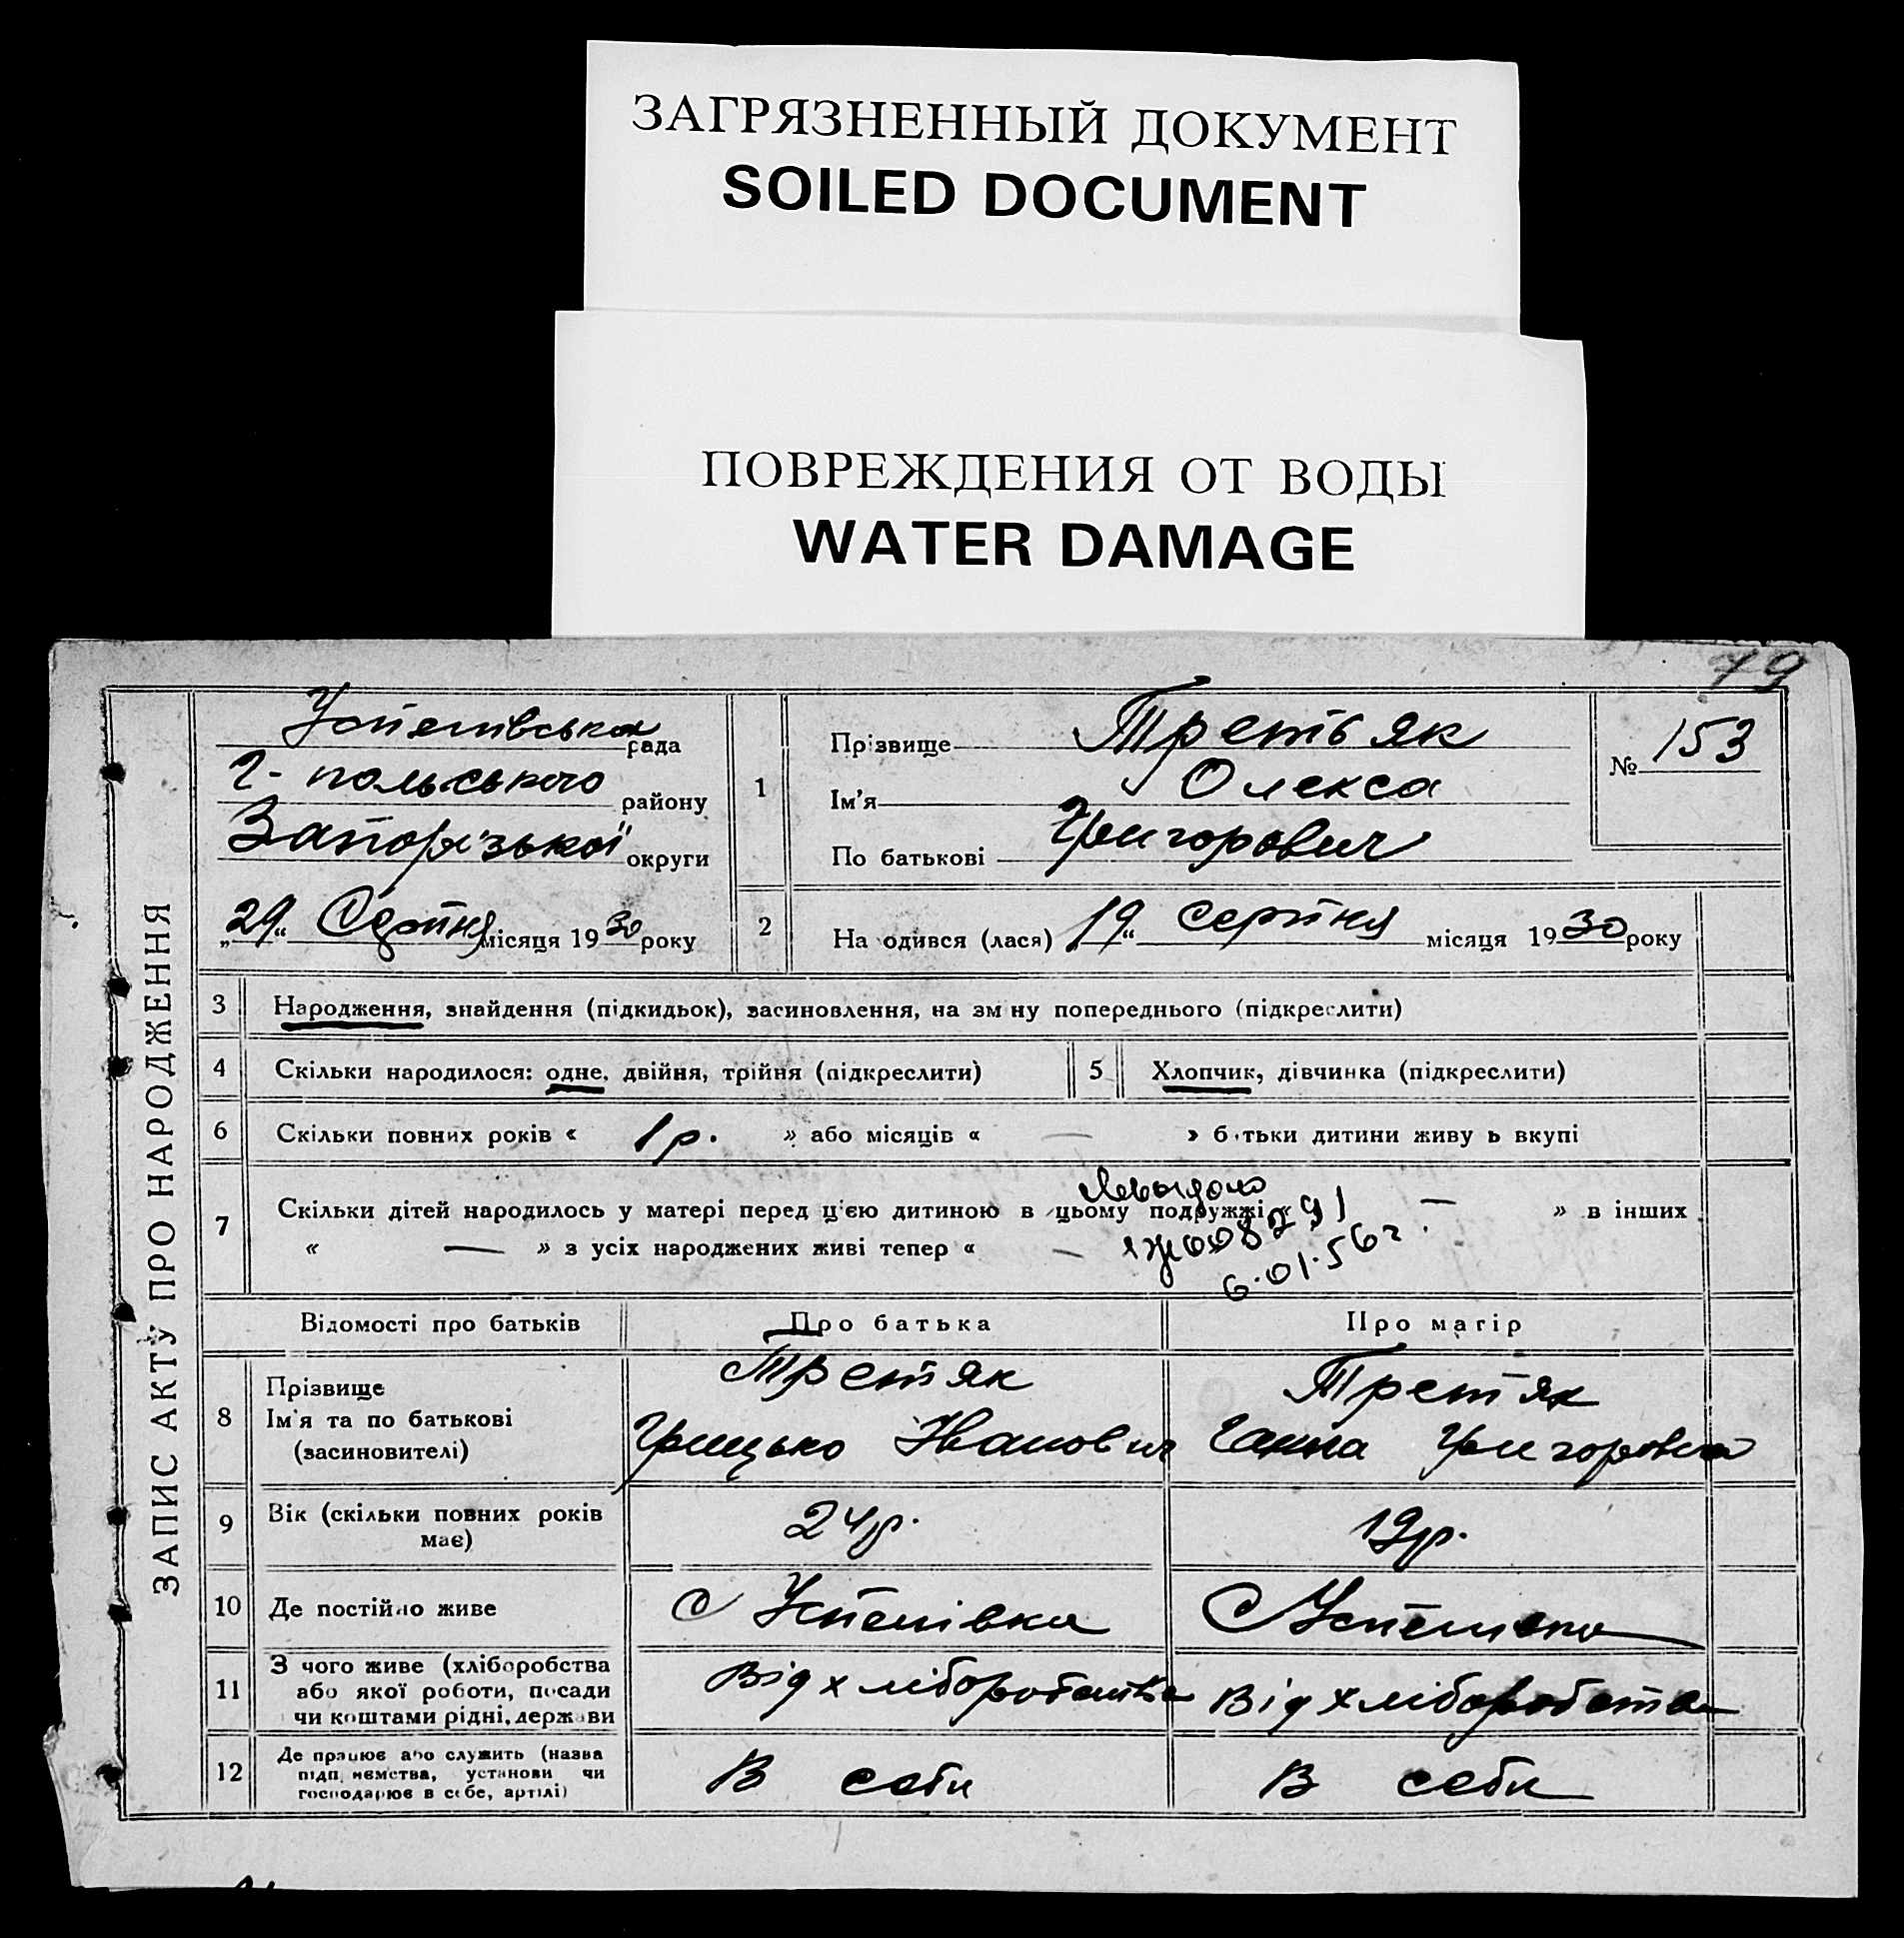 ЗАГРЯЗНЕННЫЙ ДОКУМЕНТ
SOILED DOCUMENT
ПОВРЕЖДЕНИЯ ОТ ВОДЫ
WATER DAMAGE
79
ЗАПИС АКТУ ПРО НАРОДЖЕННЯ
Успенівська рада
Г-польського району
Запорізької округи
„29“ Серпня місяця 1930 року
1
Прізвище Третьяк
Ім'я Олекса
По батькові Григорович
№ 153
2 На одився (лася) 19“ серпня місяця 1930 року
3 Народження, знайдення (підкидьок), засиновлення, на зм ну попереднього (підкреслити)
4 Скільки народилося: одне, двійня, трійня (підкреслити) 5 Хлопчик, дівчинка (підкреслити)
6 Скільки повних років « 1р. » або місяців « — » б тьки дитини живу ь вкупі
7 Скільки дітей народилось у матері перед ц'єю дитиною в цьому подружжі « — » в інших
« — » з усіх народжених живі тепер « —
6.01.56г.
Відомості про батьків Про батька Про матір
8 Прізвище Третяк Третяк
Ім'я та по батькові Грицько Іванович Ганна Григоровна
(засиновителі)
9 Вік (скільки повних років має) 24р. 19р.
10 Де постійно живе С Успенівка С Успенівка
11 З чого живе (хліборобства
або якої роботи, посади
чи коштами рідні, держави
Від хліборобства Від хліборобства
12 Де працює або служить (назва
підп иємства, установи чи
господарює в себе, артілі)
В себи В себи